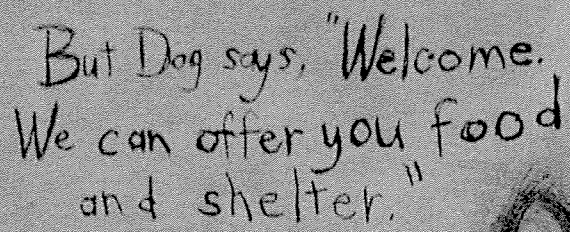 But Dog says, "Welcome.
We can offer you food
and shelter."